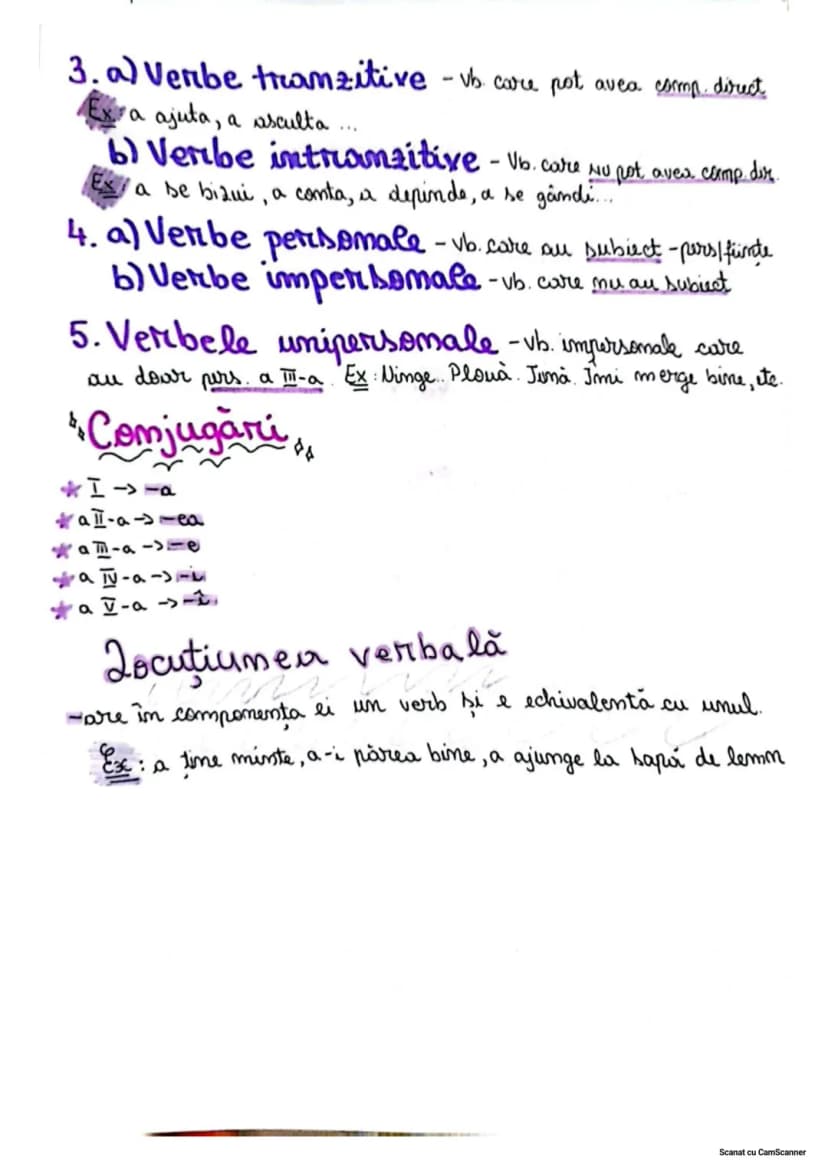 3. a) Verbe tranzitive - vb. care pot avea comp. direct
Ex: a ajuta, a asculta ...
b) Verbe intranzitive - Vb. care NU pot avea comp. dir.
Ex: a se bizui, a conta, a depinde, a se gândi...
4. a) Verbe personale - vb. care au subiect - pers/ființe
b) Verbe impersonale - vb. care nu au subiect
5. Verbele unipersonale - vb. impersonale care
au doar pers. a III-a. Ex: Ninge. Plouă. Tună. Îmi merge bine, etc.
Conjugări
I -> -a
a II-a -> -ea
a III-a -> -e
a IV-a -> -i
a V-a -> -î
Locuțiunea verbală
-are în componența ei un verb și e echivalentă cu unul.
Ex: a ține minte, a-i părea bine, a ajunge la sapă de lemn
Scanat cu CamScanner